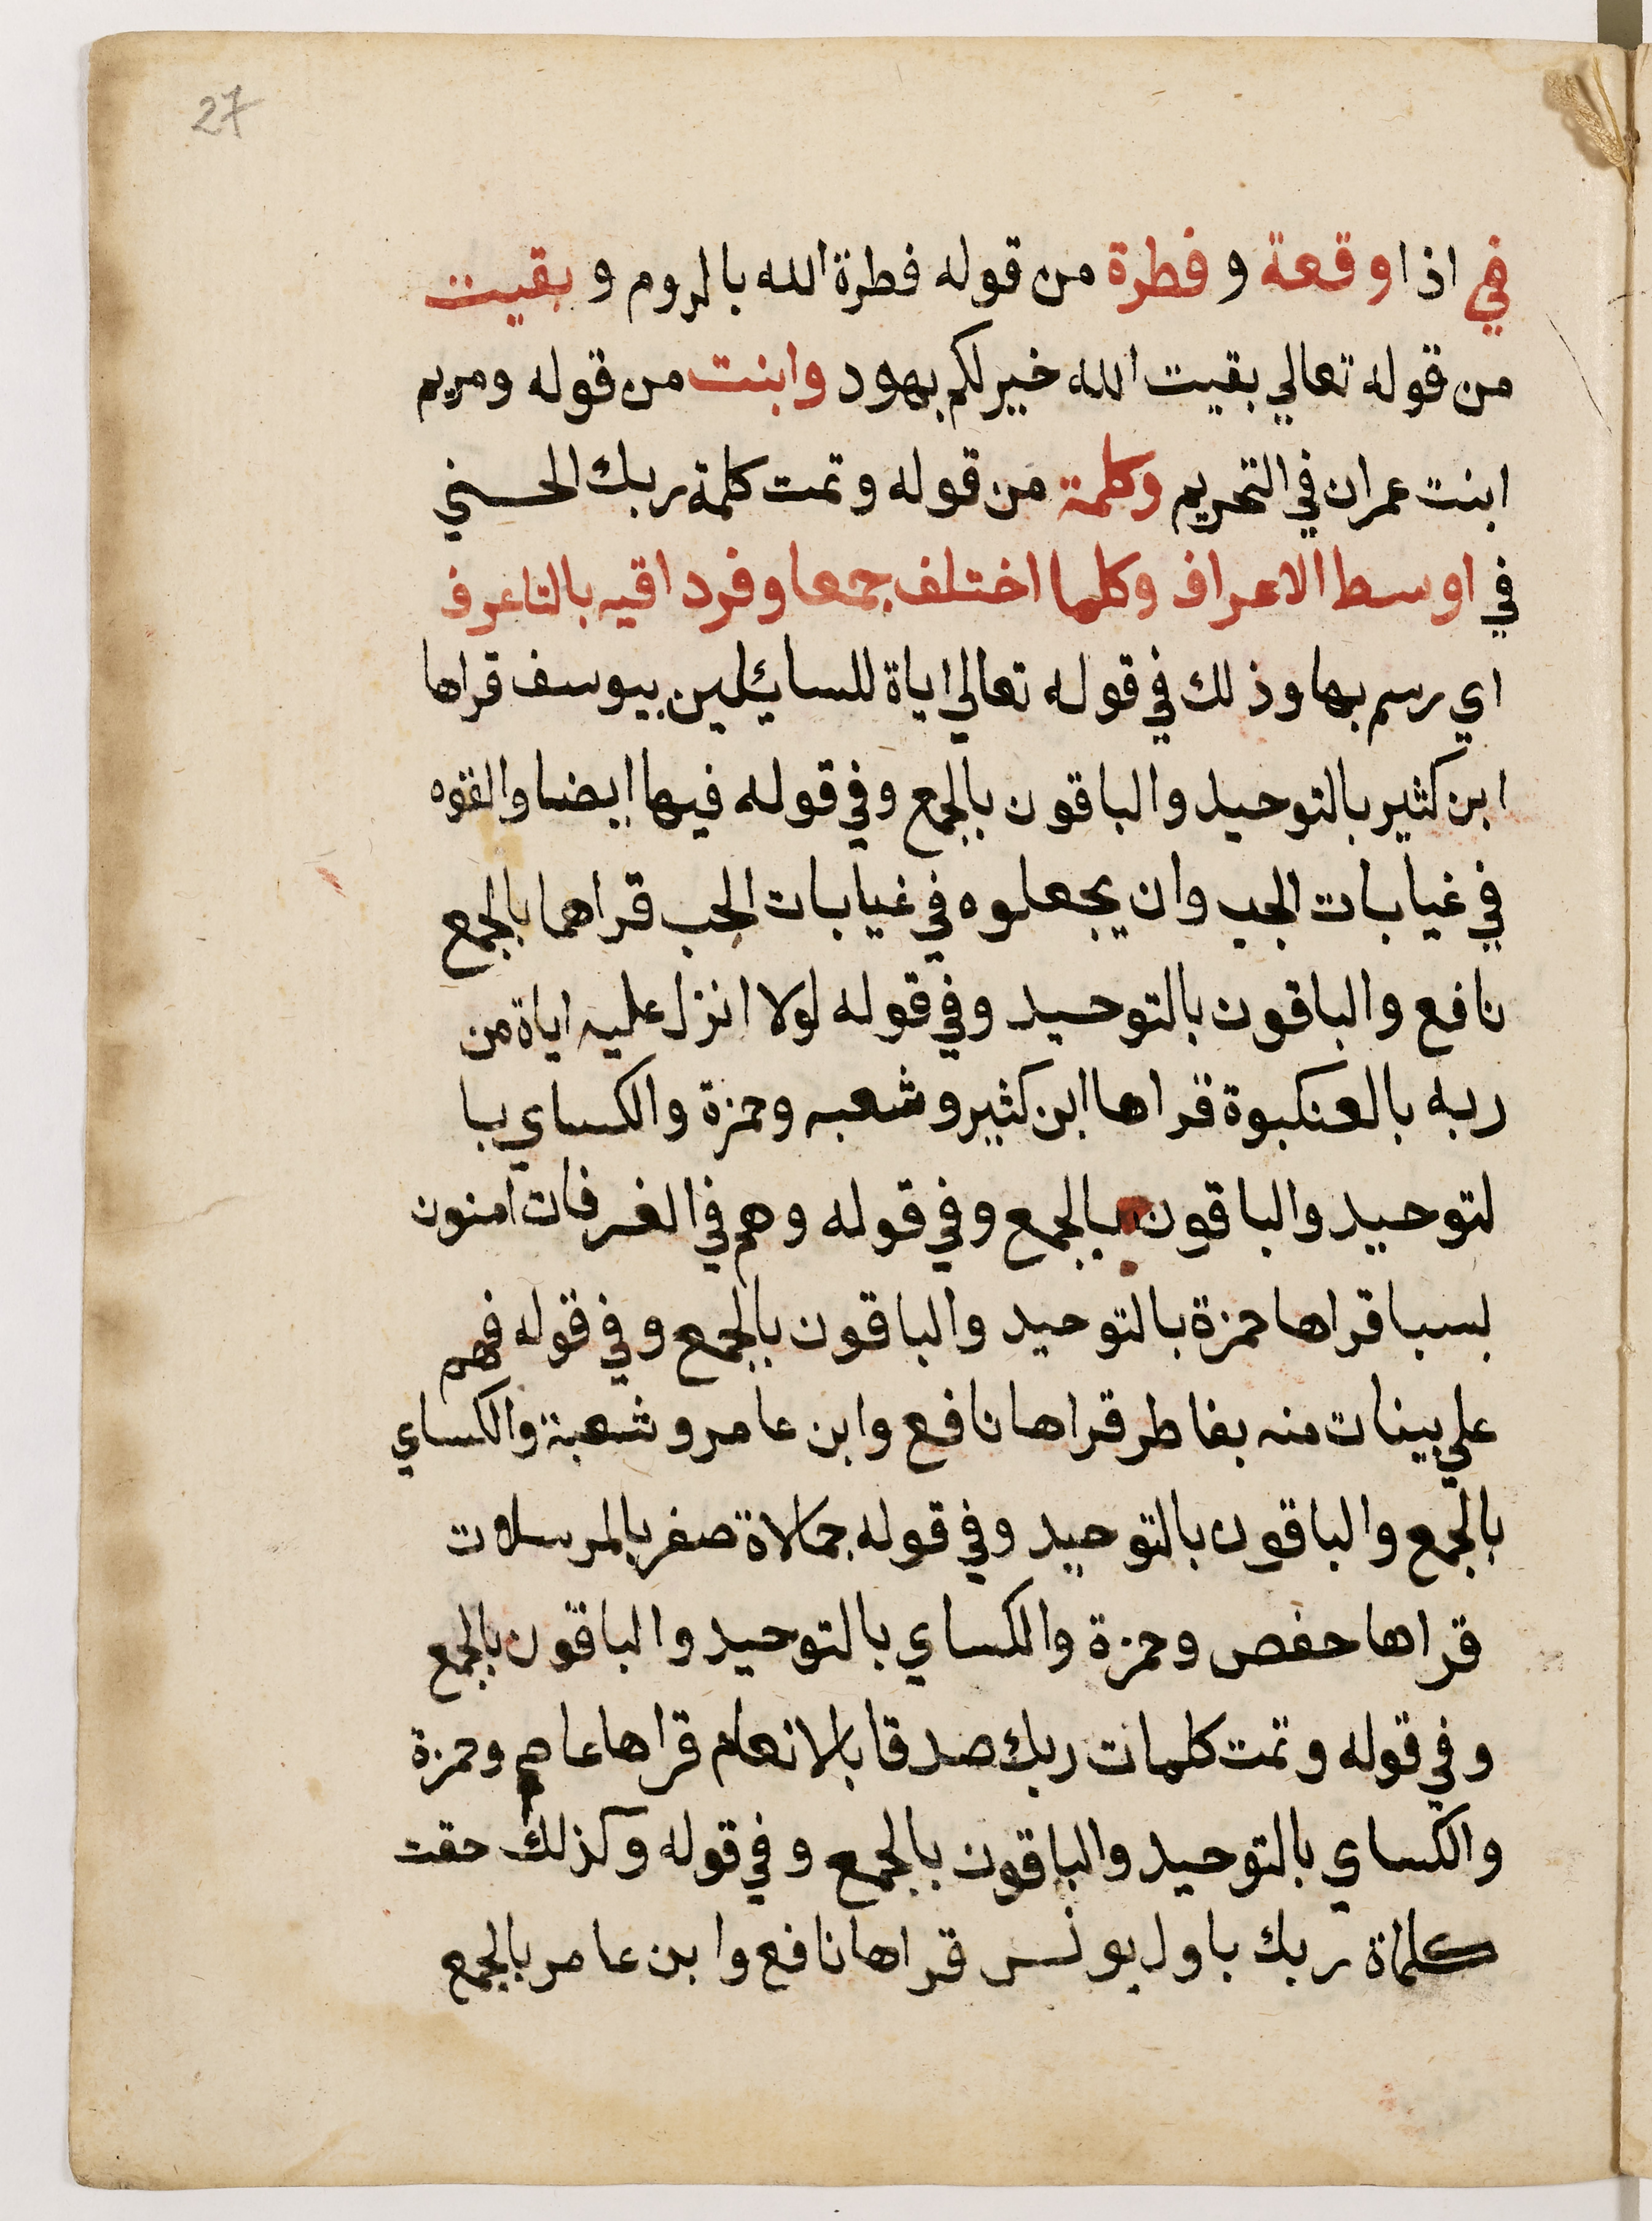 27
في اذا وقعة و فطرة من قوله فطرة الله بالروم و بقيت
من قوله تعالي بقيت الله خير لكم بهود وابنت من قوله ومريم
ابنت عمران في التحريم وكلمة من قوله وتمت كلمة ربك الحسني
في اوسط الاعراف وكلما اختلف جمعا وفردا فيه بالتا عرف
اي رسم بها وذلك في قوله تعالي اياة للسايئلين بيوسف قراها
ابن كثير بالتوحيد والباقون بالجمع وفي قوله فيها ايضا والقوه
في غيابات الجب وان يجعلوه في غيابات الجب قراهما بالجمع
نافع والباقون بالتوحيد وفي قوله لولا انزل عليه اياة من
ربه بالعنكبوة قراها ابن كثير وشعبه وحمزة والكساي با
لتوحيد والباقون بالجمع وفي قوله وهم في الغرفات امنون
بسبا قراها حمزة بالتوحيد والباقون بالجمع وفي قوله فهم
علي بينات منه بفاطر قراها نافع وابن عامر وشعبة والكساي
بالجمع والباقون بالتوحيد وفي قوله جمالاة صفر بالمرسلات
قراها حفص وحمزة والكساي بالتوحيد والباقون بالجمع
وفي قوله وتمت كلمات ربك صدقا بالانعام قراها عاصم وحمزة
والكساي بالتوحيد والباقون بالجمع وفي قوله وكذلك حقت
كلماة ربك باول يونس قراها نافع وابن عامر بالجمع